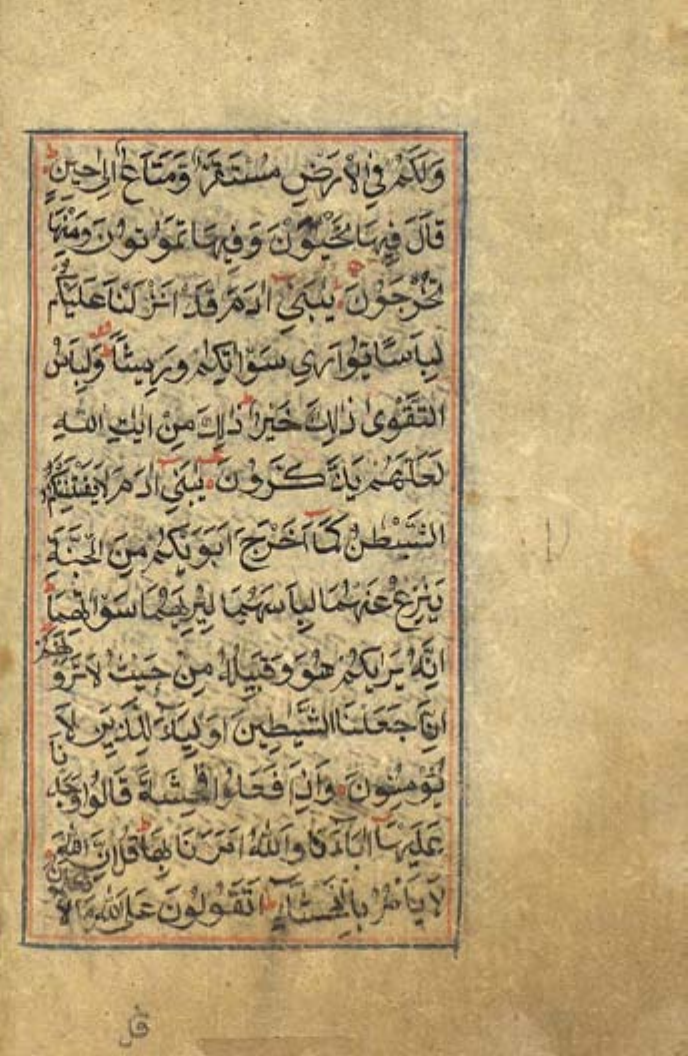 وَلَكُمْ فِي الْاَرْضِ مُسْتَقَرٌّ وَّمَتَاعٌ اِلٰى حِيْنٍ
قَالَ فِيْهَا تَحْيَوْنَ وَفِيْهَا تَمُوْتُوْنَ وَمِنْهَا
تُخْرَجُوْنَ يٰبَنِيْ اٰدَمَ قَدْ اَنْزَلْنَا عَلَيْكُمْ
لِبَاسًا يُّوَارِيْ سَوْاٰتِكُمْ وَرِيْشًا وَلِبَاسُ
التَّقْوٰى ذٰلِكَ خَيْرٌ ذٰلِكَ مِنْ اٰيٰتِ اللّٰهِ
لَعَلَّهُمْ يَذَّكَّرُوْنَ يٰبَنِيْ اٰدَمَ لَا يَفْتِنَنَّكُمُ
الشَّيْطٰنُ كَمَا اَخْرَجَ اَبَوَيْكُمْ مِنَ الْجَنَّةِ
يَنْزِعُ عَنْهُمَا لِبَاسَهُمَا لِيُرِيَهُمَا سَوْاٰتِهِمَا
اِنَّهٗ يَرٰىكُمْ هُوَ وَقَبِيْلُهٗ مِنْ حَيْثُ لَا تَرَوْنَهُمْ
اِنَّا جَعَلْنَا الشَّيٰطِيْنَ اَوْلِيَاءَ لِلَّذِيْنَ لَا
يُؤْمِنُوْنَ وَاِذَا فَعَلُوْا فَاحِشَةً قَالُوْا وَجَدْنَا
عَلَيْهَا اٰبَاءَنَا وَاللّٰهُ اَمَرَنَا بِهَا قُلْ اِنَّ اللّٰهَ
لَا يَاْمُرُ بِالْفَحْشَاءِ اَتَقُوْلُوْنَ عَلَى اللّٰهِ مَا لَا
قل